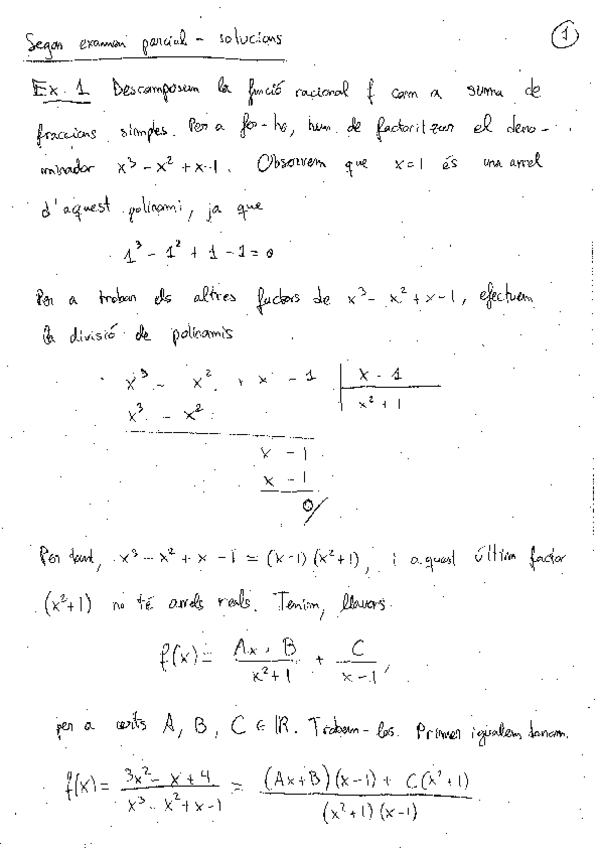 Segon examen parcial - solucions
1
Ex. 1 Descomposem la funció racional f com a suma de
fraccions simples. Per a fer-ho, hem de factoritzar el deno-
minador x³ - x² + x - 1. Observem que x=1 és una arrel
d'aquest polinomi, ja que
1³ - 1² + 1 - 1 = 0
Per a trobar els altres factors de x³ - x² + x - 1, efectuem
la divisió de polinomis
x³ - x² + x - 1 | x - 1
x³ - x² | x² + 1
x - 1
x - 1
0
Per tant, x³ - x² + x - 1 = (x-1)(x²+1), i aquest últim factor
(x²+1) no té arrels reals. Tenim, llavors
f(x) = (Ax + B)/(x²+1) + C/(x-1),
per a certs A, B, C ∈ ℝ. Trobem-los. Primer igualem
f(x) = (3x² - x + 4)/(x³ - x² + x - 1) = ((Ax+B)(x-1) + C(x²+1))/((x²+1)(x-1))